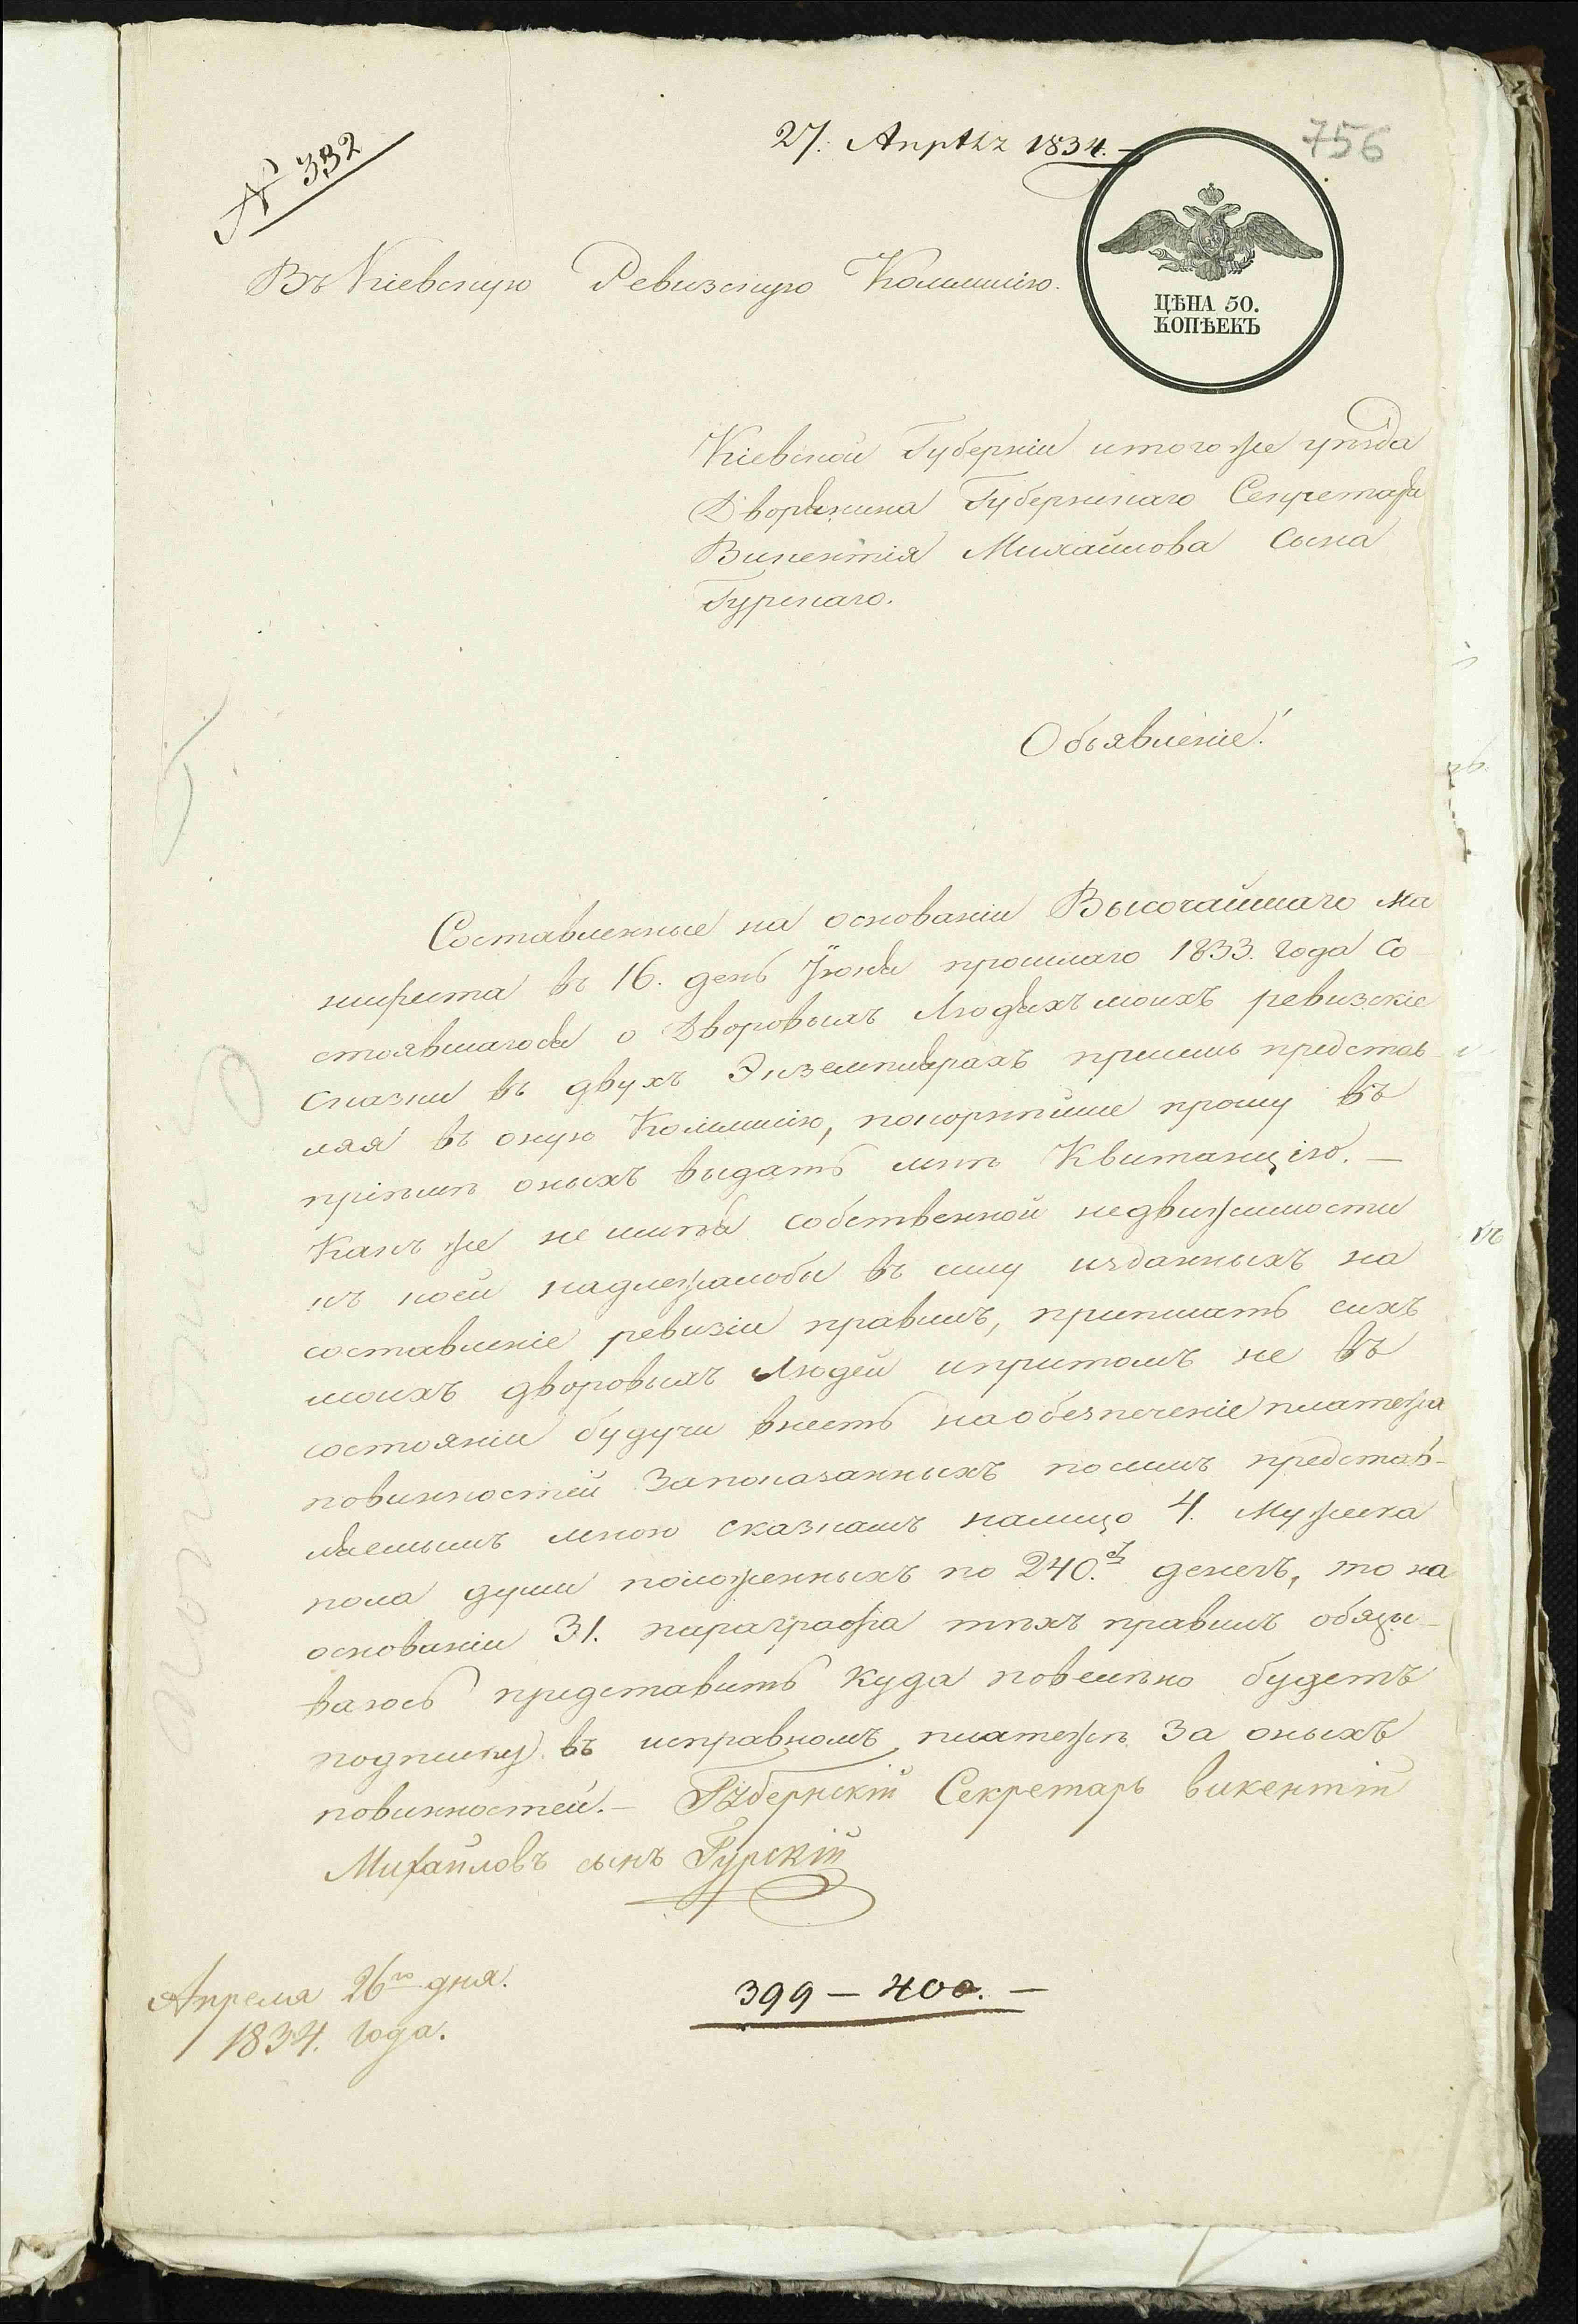 № 332
27. Апрѣля 1834.—
756
ЦѢНА 50.
КОПѢЕКЪ
Въ Кіевскую Ревизскую Коммисію.
Кіевской Губерніи итогоже уѣзда
Дворянина Губернскаго Секретаря
Викентія Михайлова Сына
Гурскаго.
Объявленіе!
Составленные на основаніи Высочайшаго ма
нифеста въ 16. день Іюня прошлаго 1833. года со
стоявшагося о Дворовыхъ Людяхъ моихъ ревизскіе
сказки въ двухъ Экземплярахъ присемъ представ-
ляя въ оную Коммисію, покорнѣйше прошу въ
пріемѣ оныхъ выдать мнѣ Квитанцію.—
Какъ же не имѣя собственной недвижимости
къ коей надлежалобы въ силу изданныхъ на
составленіе ревизіи правилъ, приписать сихъ
моихъ дворовыхъ Людей ипритомъ не въ
состояніи будучи внесть наобезпеченіе платежа
повинностей Запоказанныхъ посимъ представ-
ляемымъ мною сказкамъ налицо 4. Мужеска
пола души положенныхъ по 240. денегъ, то на
основаніи 31. параграфа тѣхъ правилъ обязы-
ваюсь представить куда повелѣно будетъ
подписку въ исправномъ платежѣ За оныхъ
повинностей.— Губернскій Секретарь викентій
Михайловъ сынъ Гурскій
Апреля 26го дня.
1834. года.
399 — 400. —